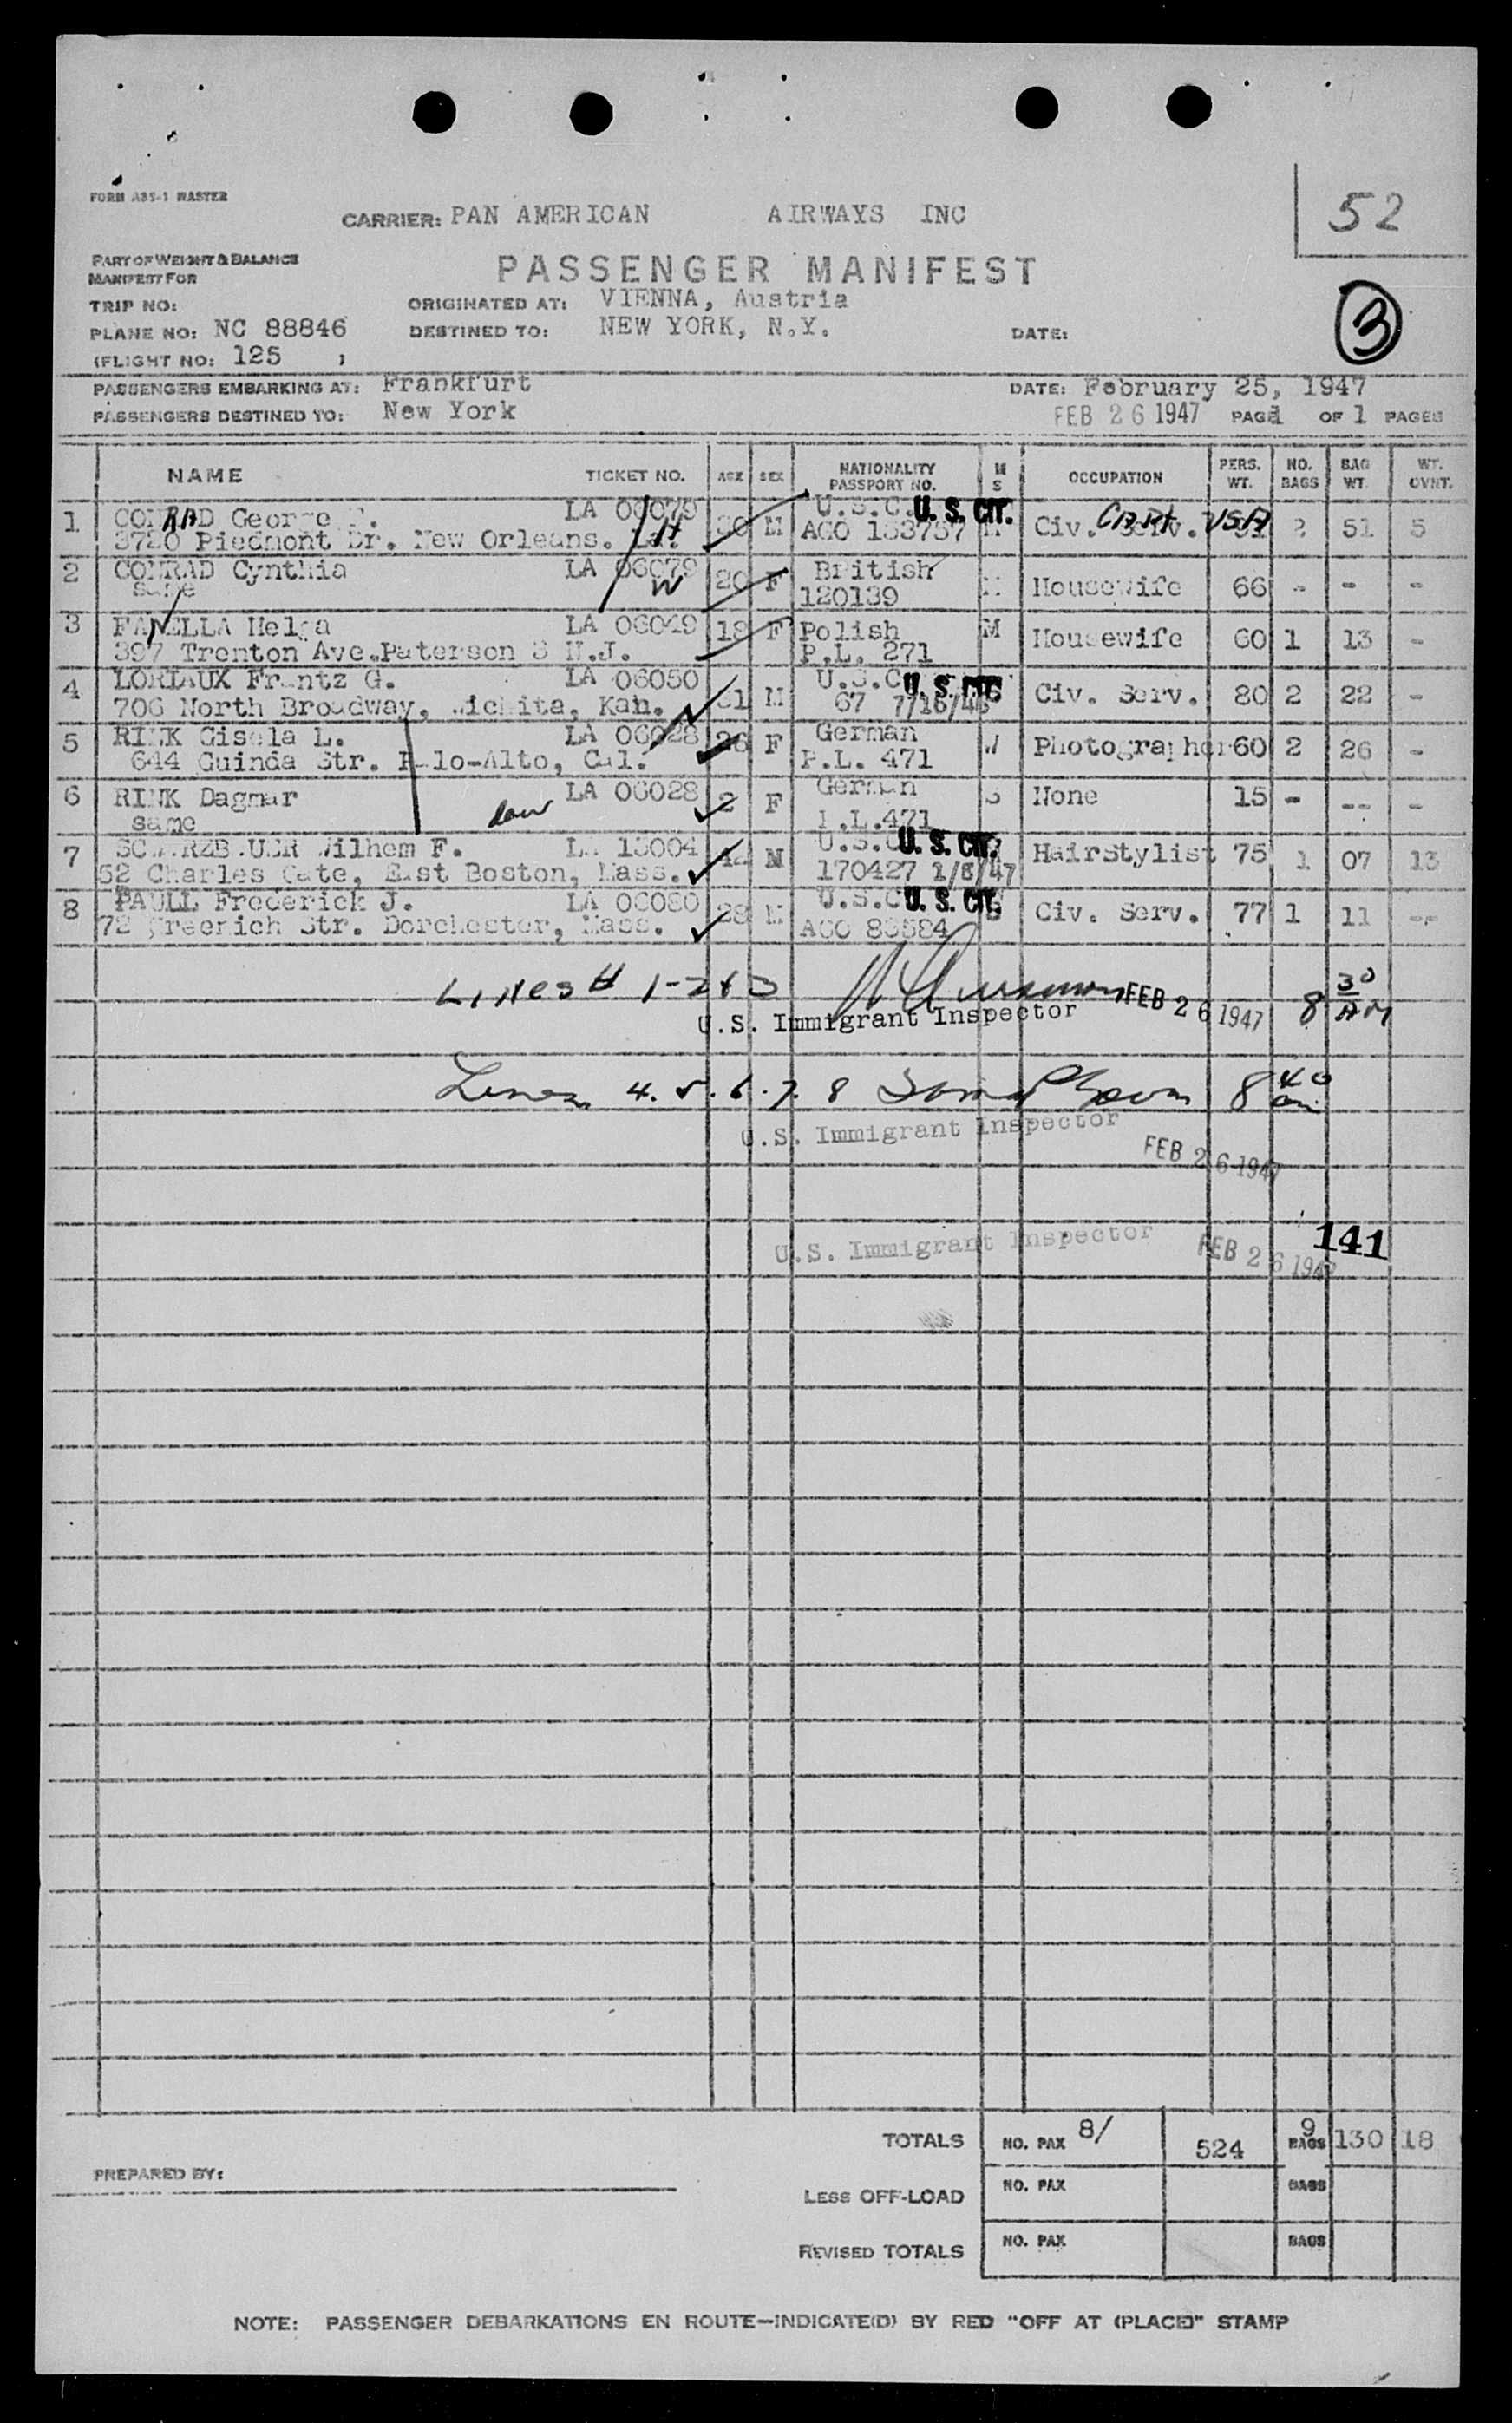 FORM ABS-1 MASTER
CARRIER: PAN AMERICAN AIRWAYS INC
52
PART OF WEIGHT & BALANCE
MANIFEST FOR
PASSENGER MANIFEST
TRIP NO: ORIGINATED AT: VIENNA, Austria
PLANE NO: NC 88846 DESTINED TO: NEW YORK, N.Y. DATE:
3
(FLIGHT NO: 125 )
PASSENGERS EMBARKING AT: Frankfurt DATE: February 25, 1947
PASSENGERS DESTINED TO: New York FEB 26 1947 PAGE 1 OF 1 PAGES
NAME TICKET NO. AGE SEX NATIONALITY PASSPORT NO. M S OCCUPATION PERS. WT. NO. BAGS BAG WT. WT. OVNT.
1 CONRAD George LA 06079 30 M U.S.C. U. S. CIT. Civ. Serv. CAPT USA 2 51 5
3720 Piedmont Dr. New Orleans. La. H AGO 133757
2 CONRAD Cynthia LA 06079 20 F British Housewife 66 - - -
same W 120139
3 FANELLA Helga LA 06049 18 F Polish M Housewife 60 1 13 -
397 Trenton Ave.Paterson 3 N.J. P.L. 271
4 LORIAUX Frantz G. LA 06050 31 M U.S.C U. S. CIT Civ. Serv. 80 2 22 -
706 North Broadway, Wichita, Kan. 67 7/16/46
5 RINK Gisela L. LA 06028 26 F German Photographer 60 2 26 -
644 Guinda Str. Palo-Alto, Cal. P.L. 471
6 RINK Dagmar LA 06028 2 F German S None 15 - -- -
same P.L.471
7 SCHWARZBAUER Wilhem F. LA 13004 42 M U.S.C U. S. CIT. Hairstylist 75 1 07 13
52 Charles Gate, East Boston, Mass. 170427 1/8/47
8 PAULL Frederick J. LA 06080 28 M U.S.C U. S. CIT Civ. Serv. 77 1 11 --
72 Str. Dorchester, Mass. AGO 86584
Lines # 1-2+3 FEB 26 1947 8 30 AM
U.S. Immigrant Inspector
Lines 4. 5. 6. 7. 8 8 40 am
U.S. Immigrant Inspector
FEB 26 1947
141
U.S. Immigrant Inspector FEB 26 1947
TOTALS NO. PAX 8/ 524 9 BAGS 130 18
PREPARED BY:
LESS OFF-LOAD NO. PAX BAGS
REVISED TOTALS NO. PAX BAGS
NOTE: PASSENGER DEBARKATIONS EN ROUTE—INDICATE(D) BY RED "OFF AT (PLACE)" STAMP